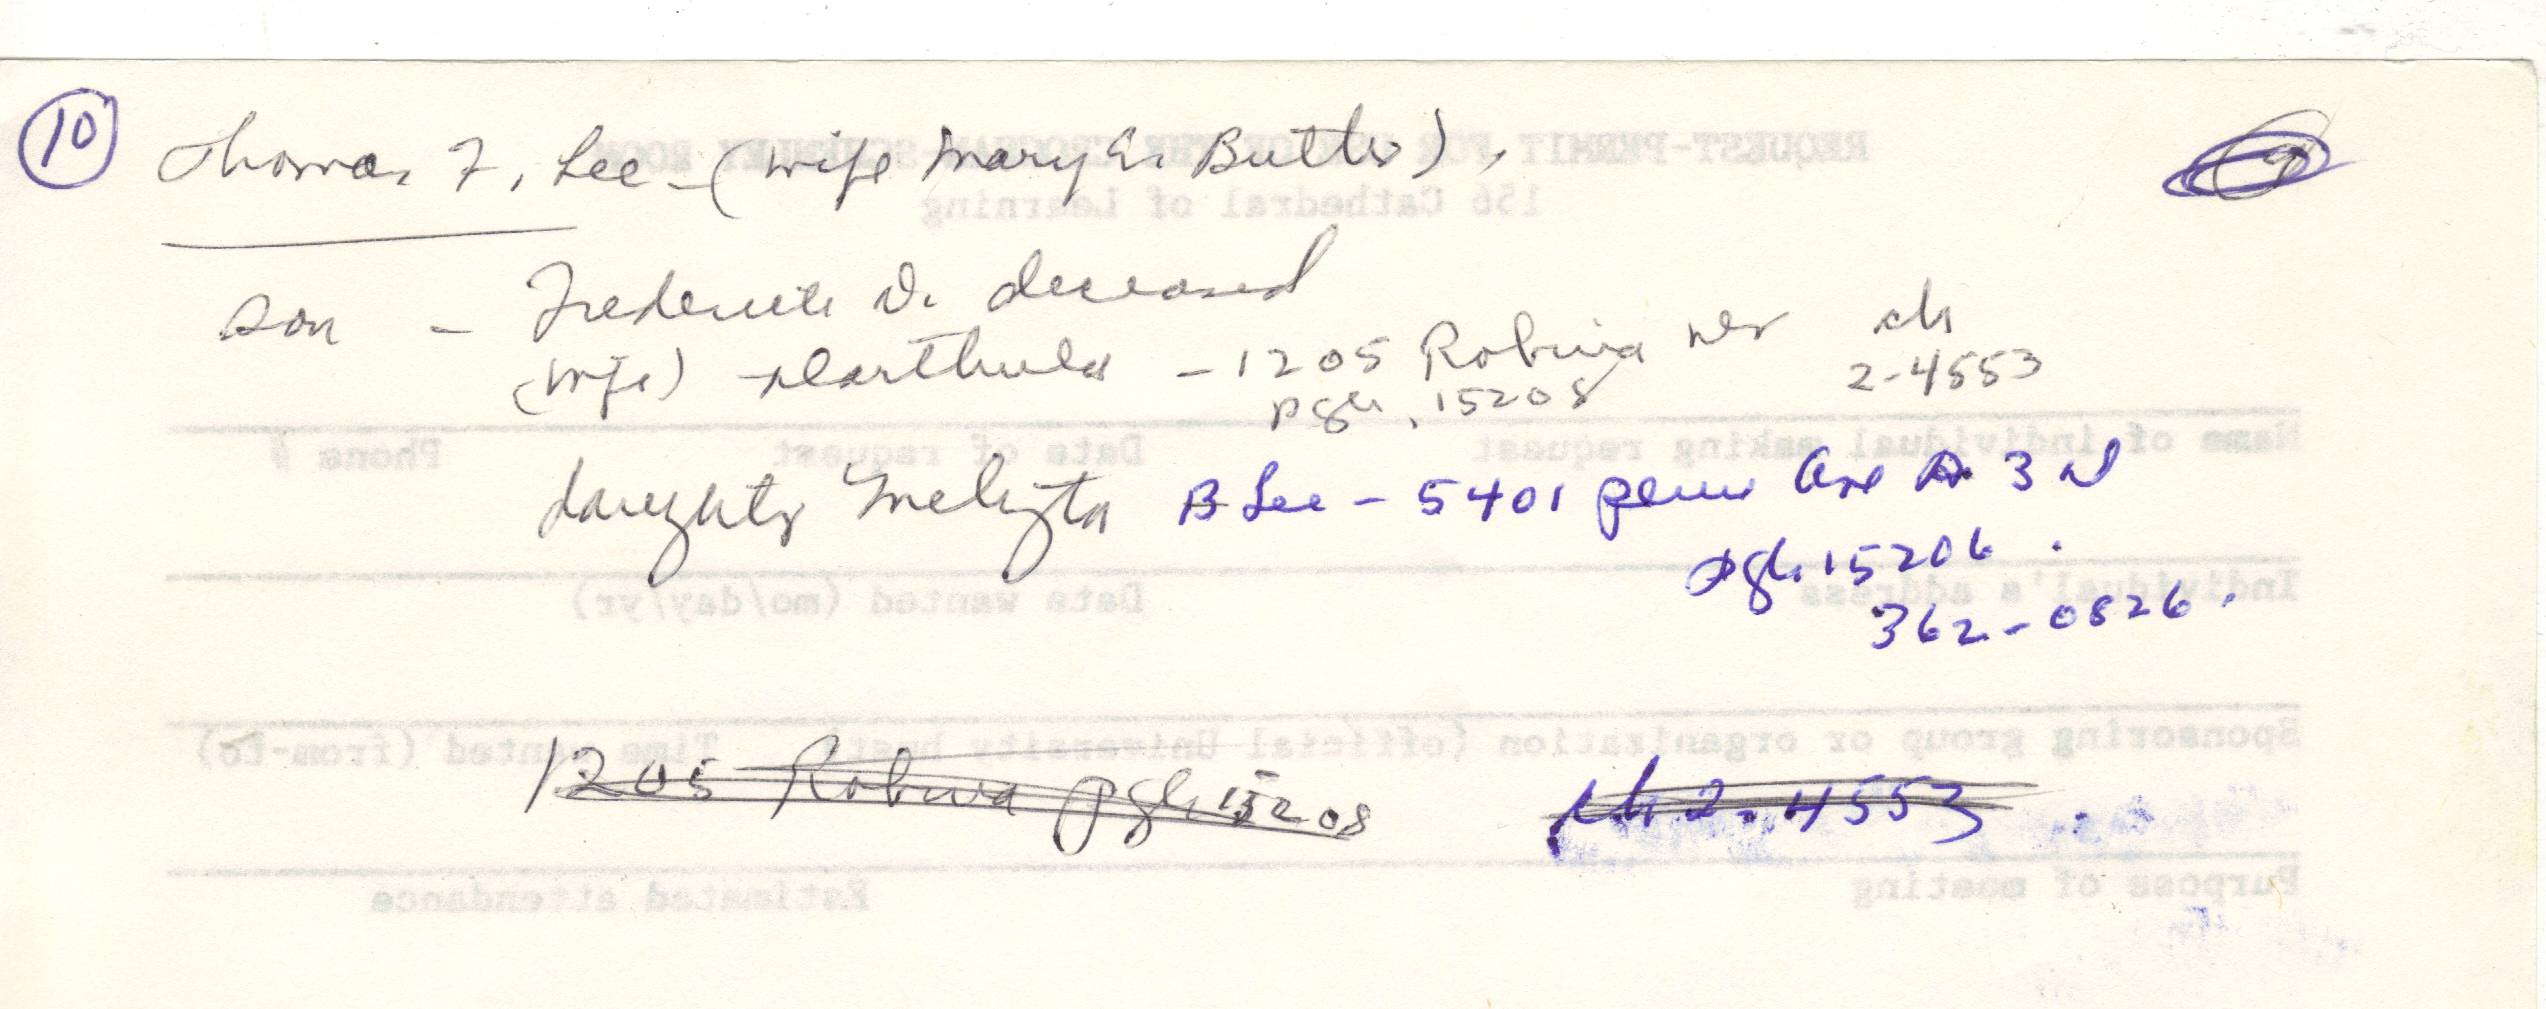 10 Thomas F. Lee - (wife Mary E. Butler),
son - Frederick D. deceased
(wife) Marthula - 1205 Robina Dr ch
pgh, 15208 2-4553
daughter B Lee - 5401 penn ave A 3 W
pgh 15206.
362-0826.
1205 Robina pgh 15208 ch 2-4553
REQUEST-PERMIT FOR
156 Cathedral of Learning
Name of individual making request Date of request Phone #
Individual's address Date wanted (mo/day/yr)
Sponsoring group or organization (official University host) Time wanted (from-to)
Purpose of meeting Estimated attendance